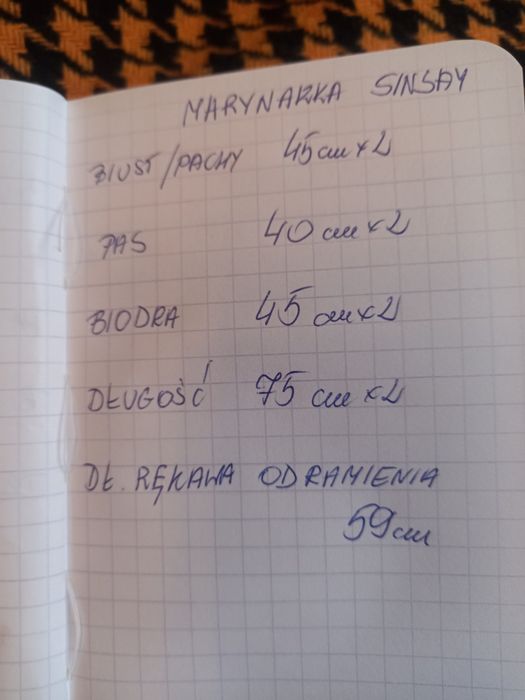 MARYNARKA SINSAY
BIUST/PACHY 45cm x2
PAS 40 cm x2
BIODRA 45 cm x2
DŁUGOŚĆ 75 cm x2
DŁ. RĘKAWA OD RAMIENIA
59cm